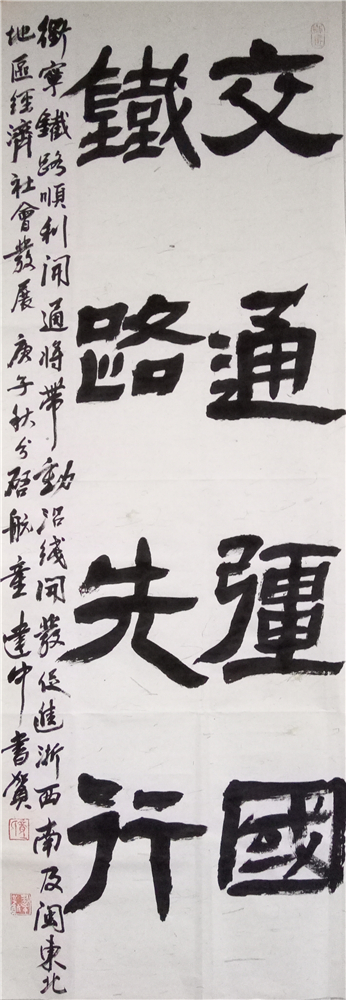 交通彊國
鐵路先行
衢寧鐵路順利開通將帶動沿綫開發促進浙西南及閩東北
地區經濟社會發展 庚子秋分啟航童達中書賀